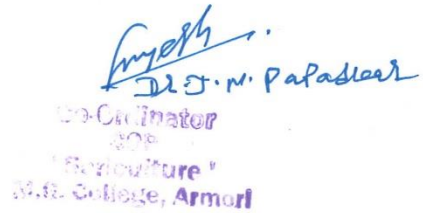 Dr. J. N. Papadkar
Co-Ordinator
COP
"Sericulture"
M.G. College, Armori